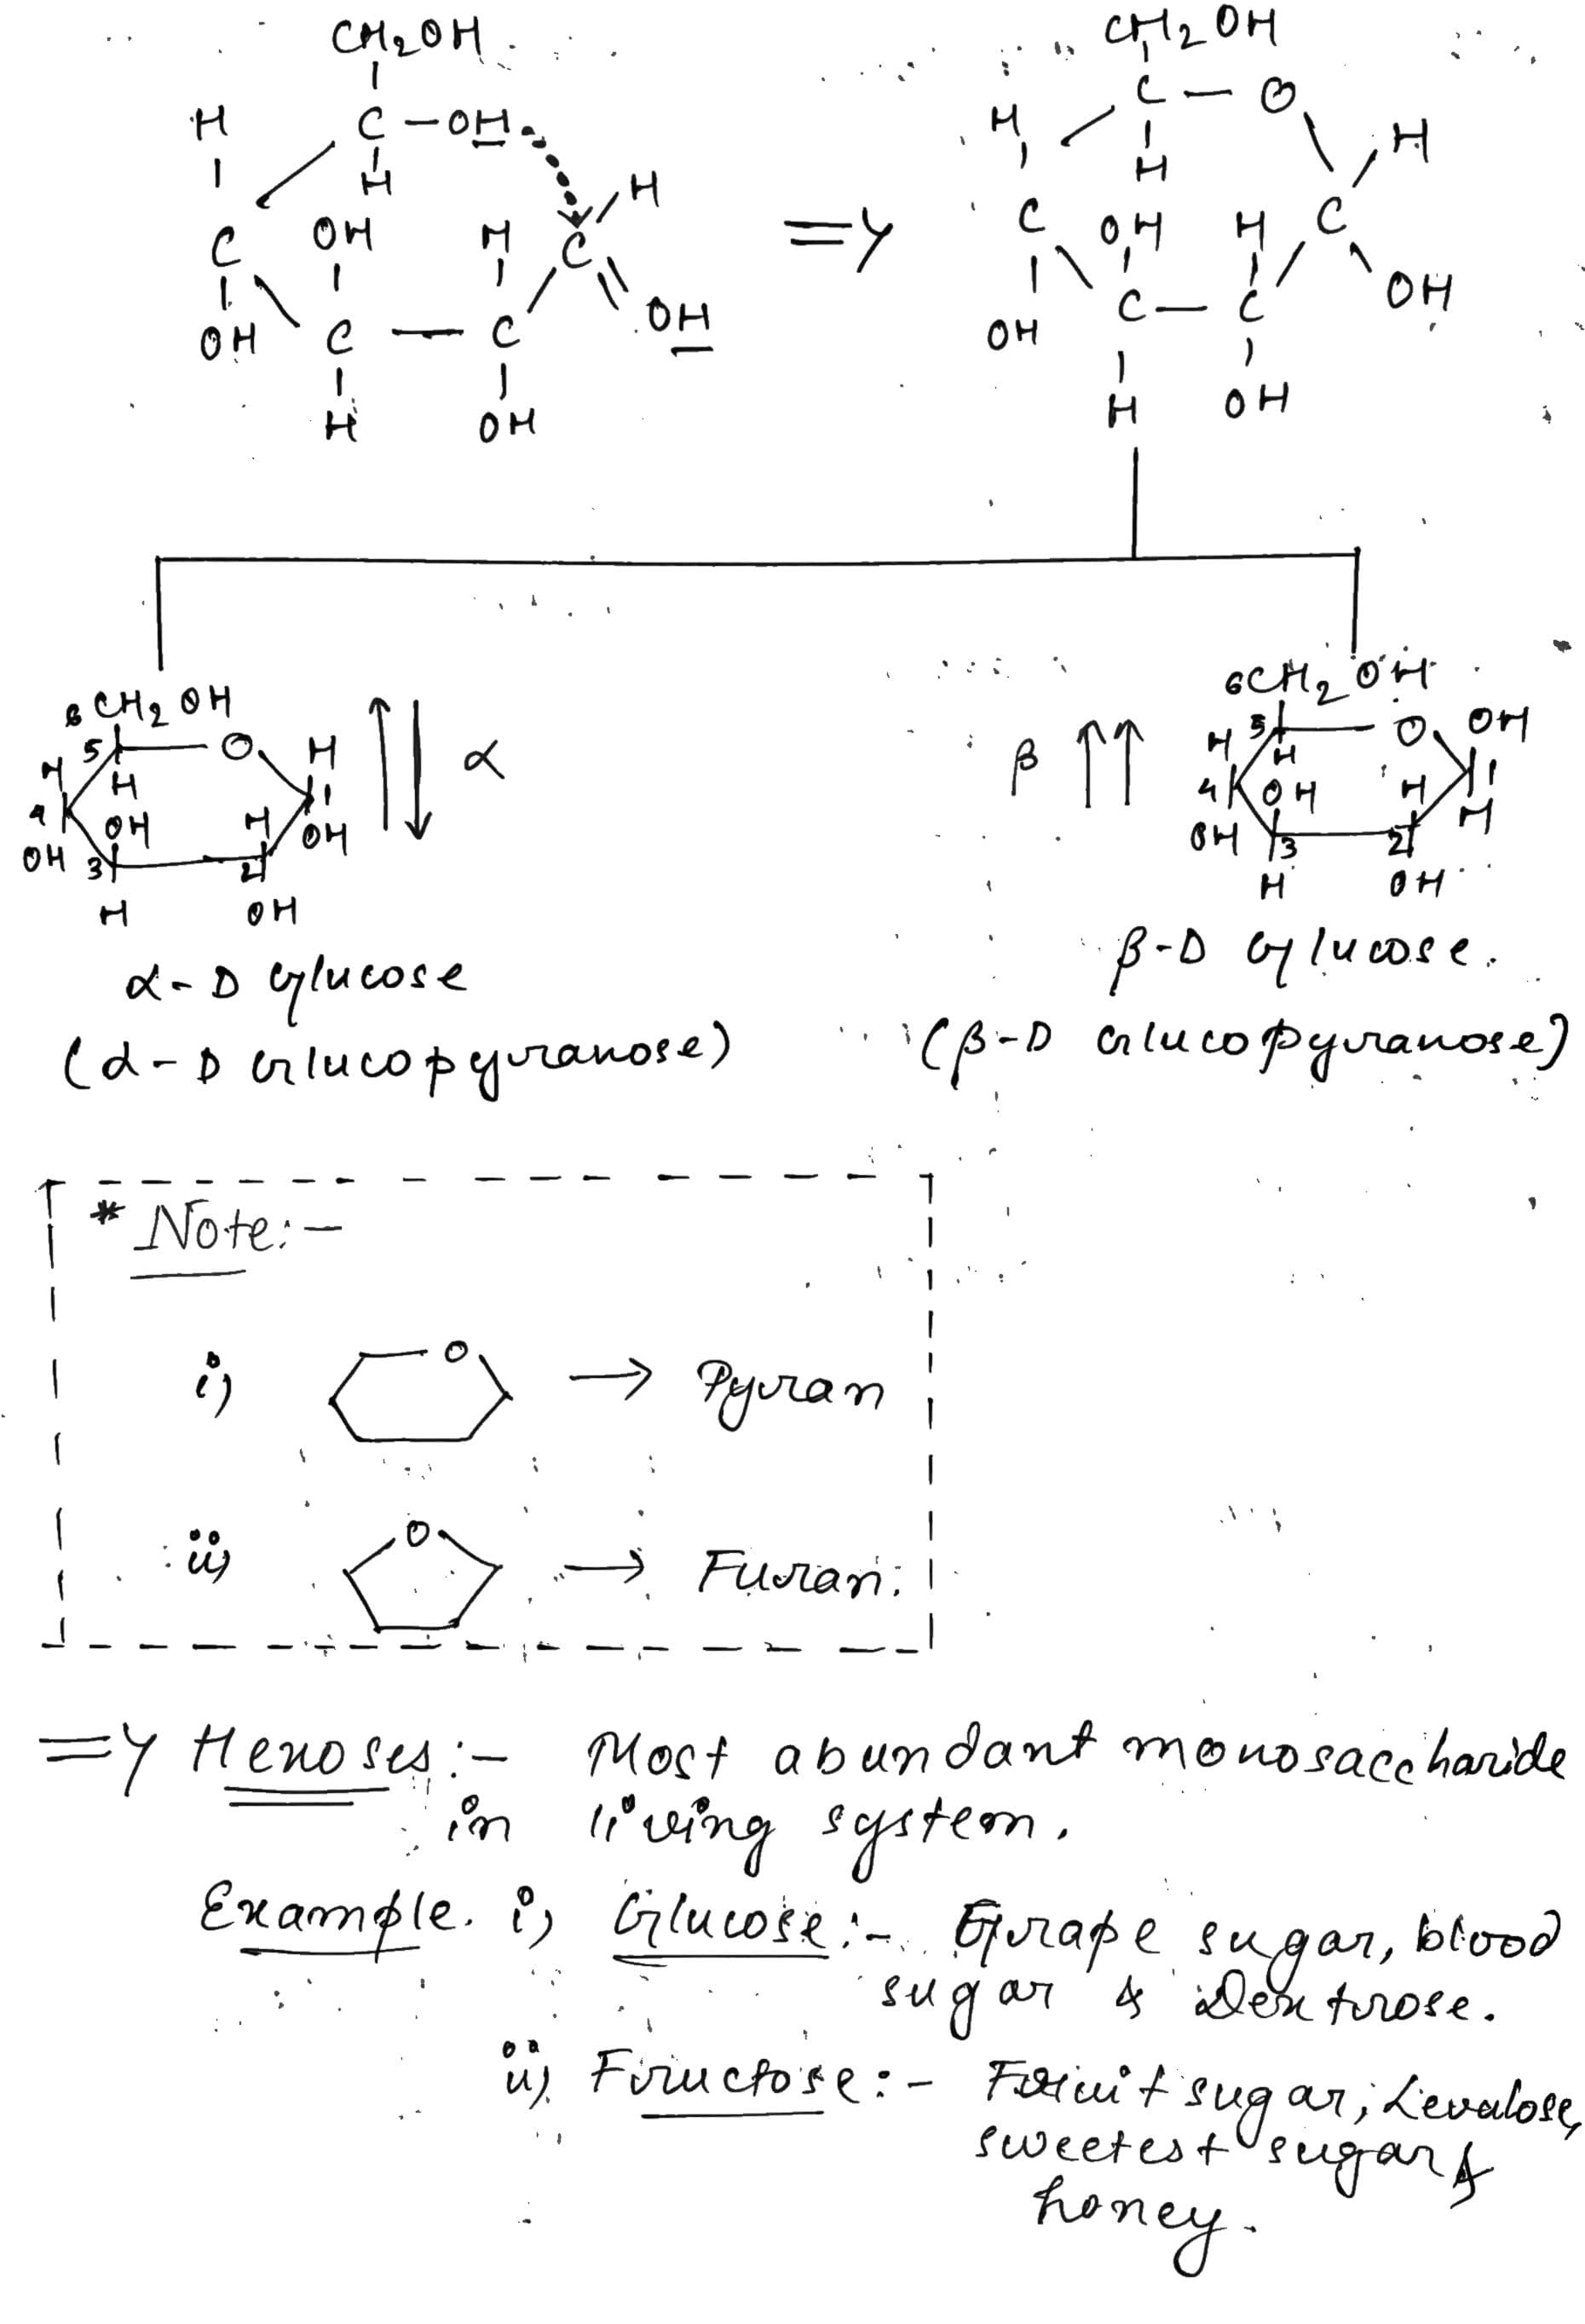 CH₂OH
H C - OH H
C OH H C
OH C — C OH
H OH
=>
CH₂OH
C - O
H H H
C OH H C
OH C - C OH
H OH
6 CH₂OH
5 O H
H H 1
4 OH H OH
OH 3 2
H OH
↑↓ α
α-D Glucose
(α-D Glucopyranose)
β ↑↑
6CH₂OH
5 O OH
H H 1
4 OH H H
OH 3 2
H OH
β-D Glucose.
(β-D Glucopyranose)
* Note:-
i) O → Pyran
ii) O → Furan.
=> Hexoses:- Most abundant monosaccharide
in living system.
Example. i) Glucose:- Grape sugar, blood
sugar & Dextrose.
ii) Fructose:- Fruit sugar, Levulose,
sweetest sugar &
honey.